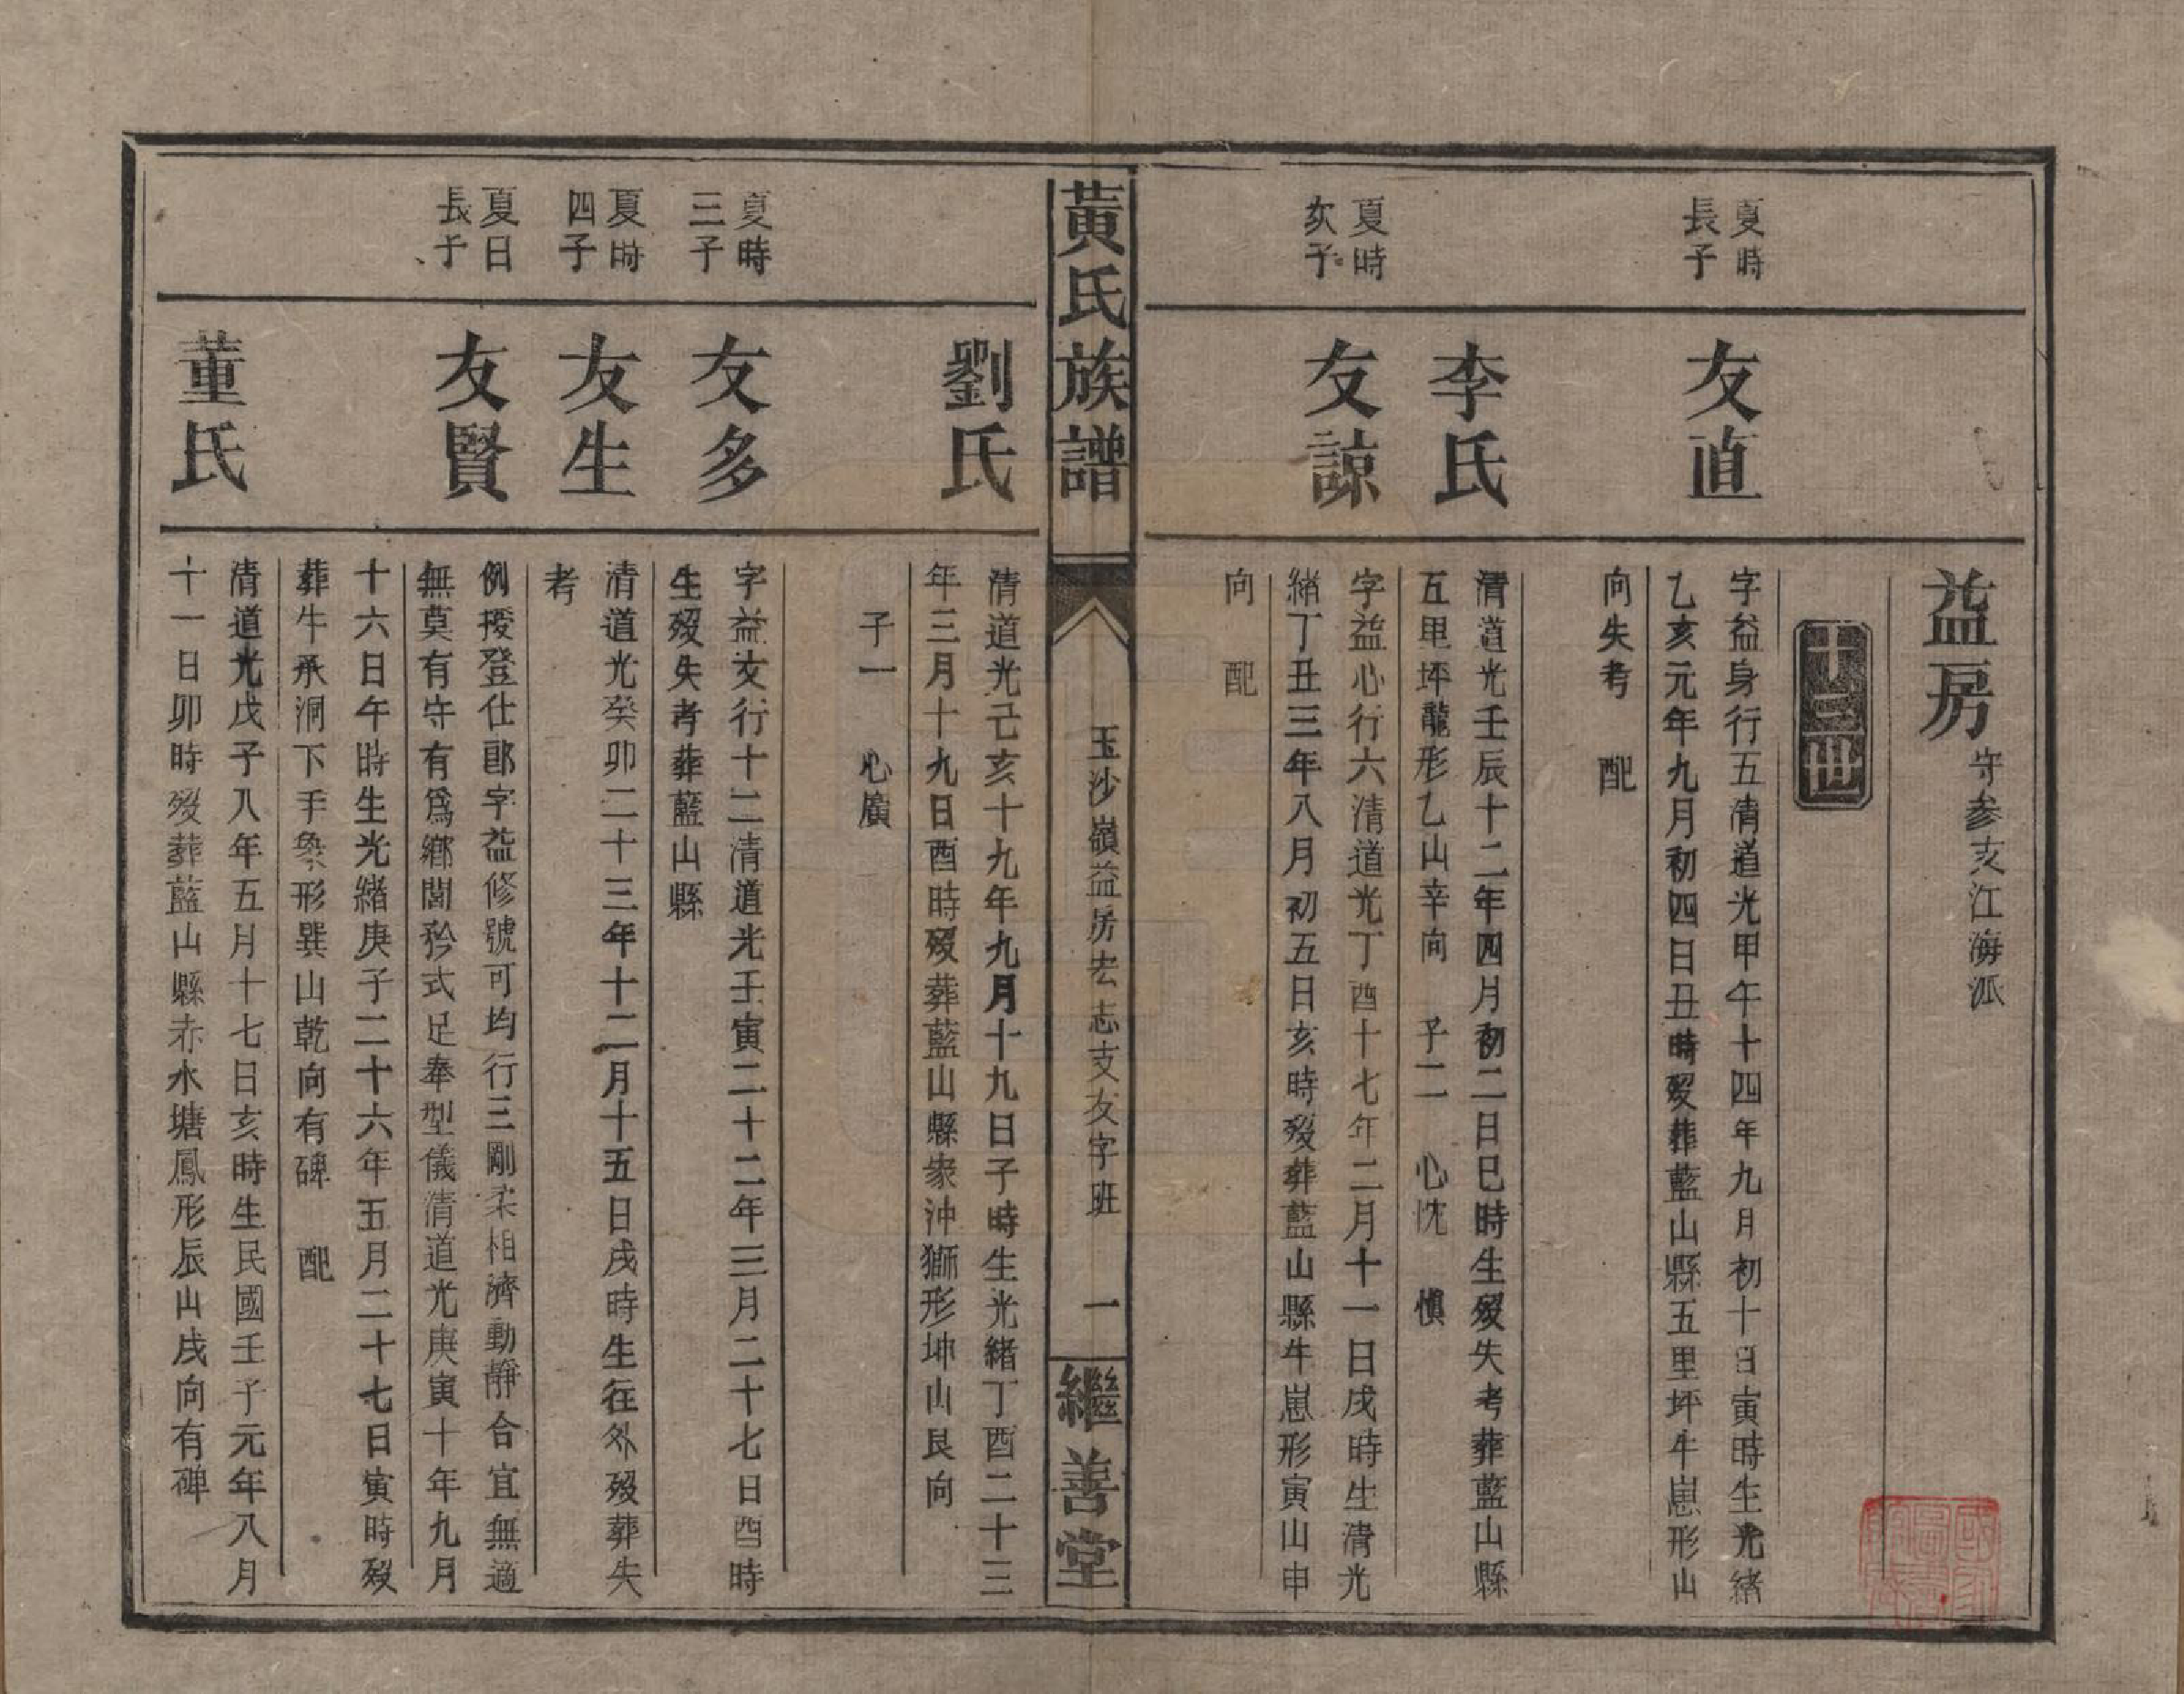 益房 守參支江海派
十三世
夏時
長子
友直
字益身行五清道光甲午十四年九月初十日寅時生光緒
乙亥元年九月初四日丑時歿葬藍山縣五里坪牛崽形山
向失考 配
李氏
清道光壬辰十二年四月初二日巳時生歿失考葬藍山縣
五里坪龍形乙山辛向 子二 心忱 慎
夏時
次子
友諒
字益心行六清道光丁酉十七年二月十一日戌時生清光
緒丁丑三年八月初五日亥時歿葬藍山縣牛崽形寅山申
向 配
黃氏族譜
玉沙嶺益房宏志支友字班
一
繼善堂
劉氏
清道光己亥十九年九月十九日子時生光緒丁酉二十三
年三月十九日酉時歿葬藍山縣家沖獅形坤山艮向
子一 心廣
夏時
三子
友多
字益友行十二清道光壬寅二十二年三月二十七日酉時
生歿失考葬藍山縣
夏時
四子
友生
清道光癸卯二十三年十二月十五日戌時生往外歿葬失
考
夏日
長子
友賢
例授登仕郎字益修號可均行三剛柔相濟動靜合宜無適
無莫有守有為鄉閭矜式足奉型儀清道光庚寅十年九月
十六日午時生光緒庚子二十六年五月二十七日寅時歿
葬牛承洞下手象形巽山乾向有碑 配
董氏
清道光戊子八年五月十七日亥時生民國壬子元年八月
十一日卯時歿葬藍山縣赤水塘鳳形辰山戌向有碑